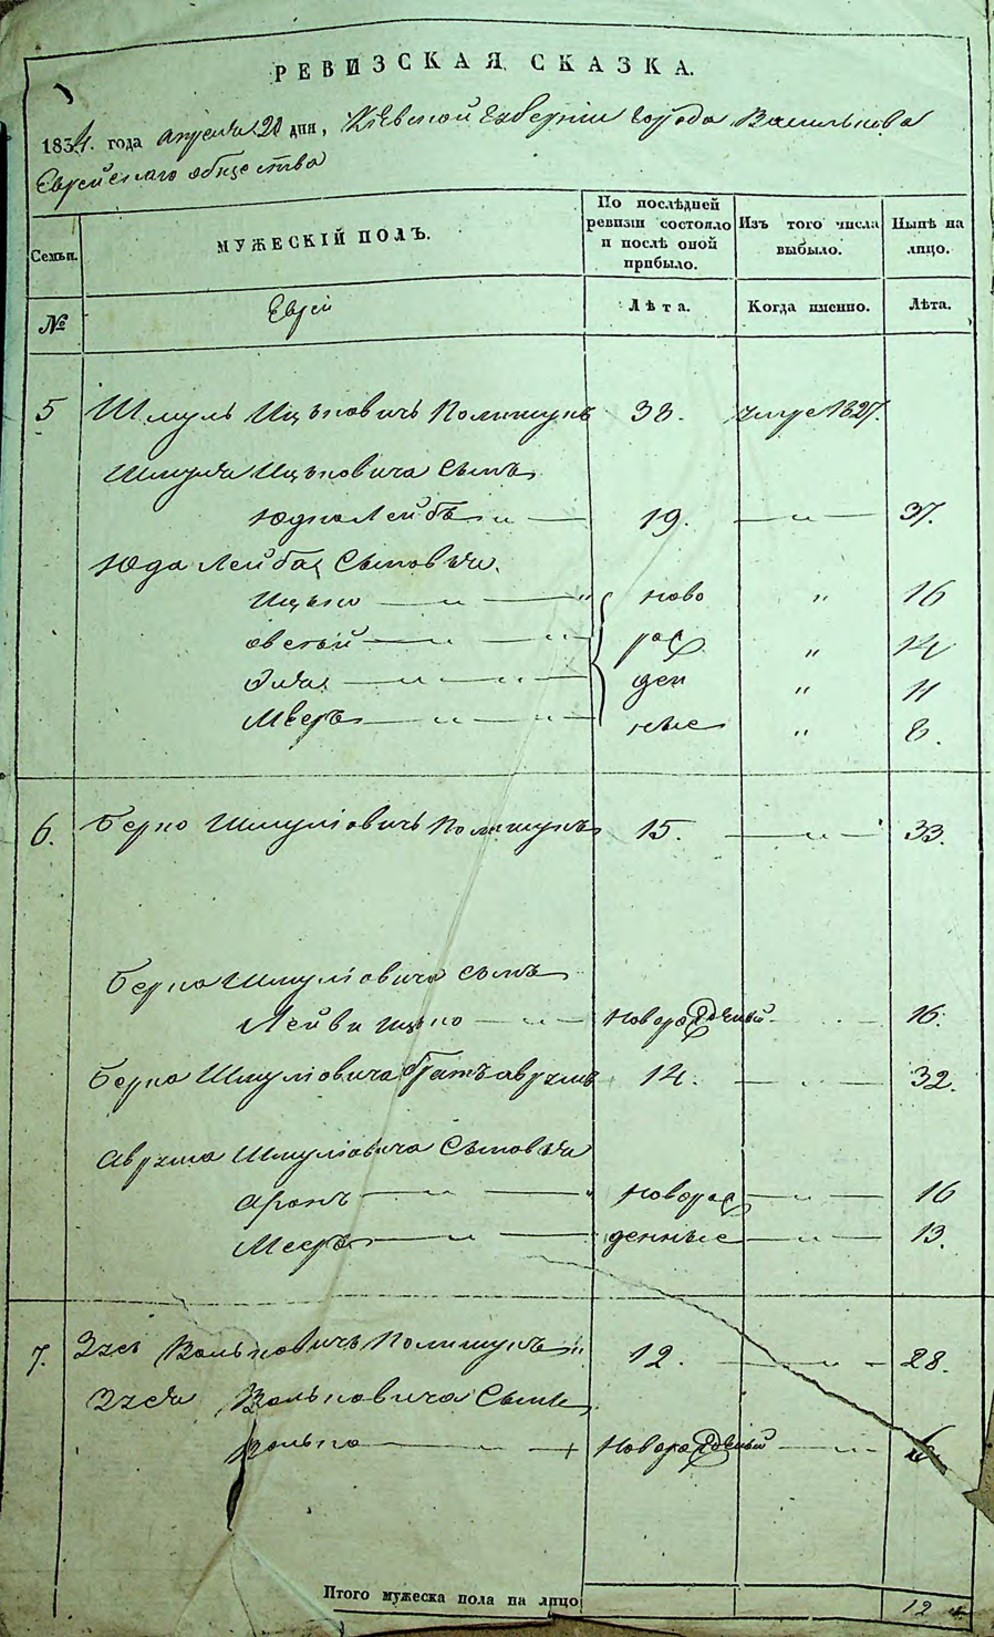 РЕВИЗСКАЯ СКАЗКА.
1834. года апреля 20 дня, Кіевской Губерніи города Василькова
Еврейскаго общества
Семьи.
МУЖЕСКІЙ ПОЛЪ.
По послѣдней ревизіи состояло и послѣ оной прибыло.
Изъ того числа выбыло.
Нынѣ на лицо.
№
Еврѣи
Лѣта.
Когда именно.
Лѣта.
5 Шмуль Ицьковичъ Полищукъ 38. умре 1827.
Шмуля Ицьковича Сынъ
Юдко Лейбъ — „ — 19. — „ — 37.
Юда Лейба Сыновья.
Ицько — „ — „ ново „ 16
Овсѣй — „ — „ — рож „ 14
— „ — „ — ден „ 11
Мверъ — „ — „ — ные „ 8.
6. Берко Шмуліовичъ Полищукъ 15. — „ — 33.
Берка Шмуліовича сынъ
Лейви Ицко — „ — Новорожденный 16.
Берка Шмуліовича братъ Аврумъ 14. — „ — 32.
Аврума Шмуліовича Сыновья
Аронъ — „ — „ Новорож — „ — 16
Мееръ — „ — денные — „ — 13.
7. Зусь Вольковичъ Полищукъ „ 12. — „ — 28.
Зуся Вольковича Сынъ
Волько — „ — Новорожденный — „ —
Итого мужеска пола на лицо 12